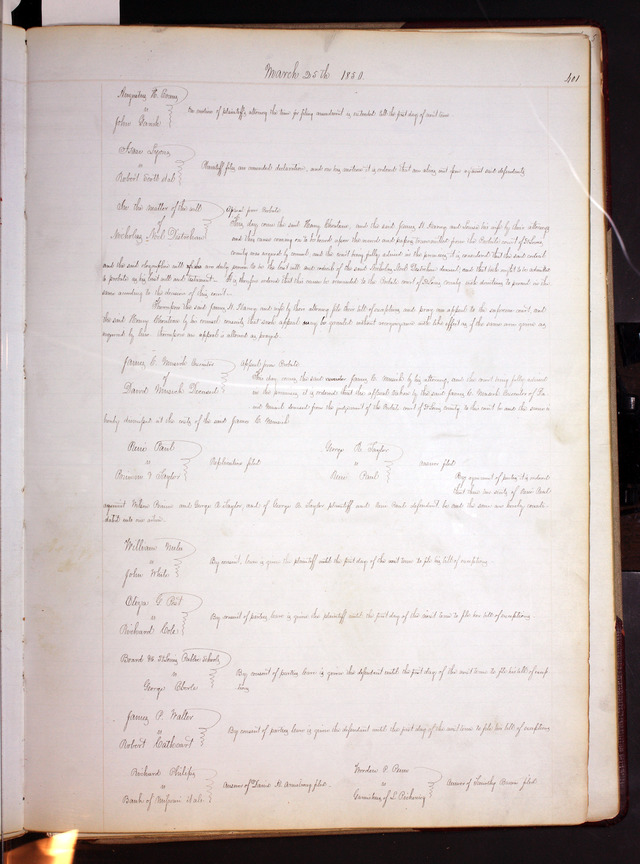 March 25th 1850.
401
Augustus H. Evans
vs
John Gamble
On motion of plaintiff, allowing the time for filing amendment is extended till the first day of next term.
Isaac
vs
Robert
Plaintiff files an amended declaration, and on his motion it is ordered that an alias writ for against said defendants
In the matter of the will
of
Nicholas Noel Desterbend
Appeal from Probate
This day come the said Henry Chouteau, and the said James G. Harney and Louisa his wife by their attorneys
and this cause coming on to be heard upon the record and papers from the Probate court of St Louis
county was argued by counsel, and the court being fully advised in the premises, it is considered that the said
and the said will of the are duly proven to be the last will and of the said Nicholas Noel Desterbend deceased, and that
to probate as his last will and testament. It is therefore ordered that this cause be remanded to the Probate court of St Louis county with directions to proceed in the
same according to the decision of this court.
Thereupon the said James G. Harney and wife by their attorney file their bill of exceptions and pray an appeal to the supreme court, and
the said Henry Chouteau by his counsel consents that such appeal may be granted without
by law thereupon an appeal is allowed as prayed.
James C. Marsh Executor
of
David Marsh Deceased
Appeal from Probate
This day comes the said James C. Marsh by his attorney, and the court being fully advised
in the premises, it is ordered that the appeal taken by the said James C. Marsh Executor of Da-
vid Marsh deceased from the judgment of the Probate court of St Louis county to this court be and the same is
hereby dismissed at the costs of the said James C. Marsh
Rene Paul
vs
& Taylor
Replication filed
George R. Taylor
vs
Rene Paul
Answer filed
By agreement of parties it is ordered
that these two suits of Rene Paul
against and George R. Taylor, and of George R. Taylor plaintiff and Rene Paul defendant, be and the same are hereby consoli-
dated into one action.
William
vs
John White
By consent, leave is given the plaintiff until the first day of the next term to file his bill of exceptions
vs
Richard Cole
By consent of parties leave is given the plaintiff until the first day of the next term to file his bill of exceptions.
Board of St Louis Public Schools
vs
George
By consent of parties leave is given the defendant until the first day of the next term to file his bill of excep-
tions
James P. Walter
vs
Robert Cathcart
By consent of parties leave is given the defendant until the first day of the next term to file his bill of exceptions
Richard Philips
vs
Bank of Missouri
Answer of David H. Armstrong filed.
vs
Garnishee of
Answer of Timothy filed